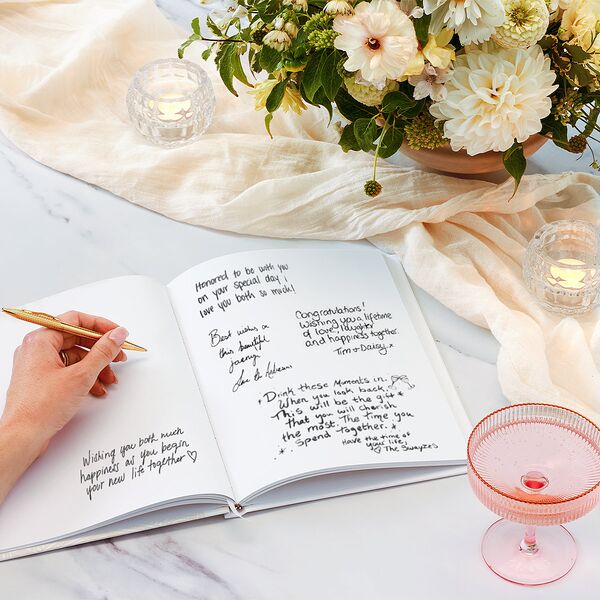 Wishing you both much
happiness as you begin
your new life together ♡
Honored to be with you
on your special day!
love you both so much!
Best wishes on
this beautiful
journey
Congratulations!
Wishing you a lifetime
of love, laughter
and happiness together.
Tim & Daisy x
Drink these moments in.
When you look back
This will be the gift
that you will cherish
the most. The time you
Spend together.
Have the time of
your life,
♡ The Swayzes